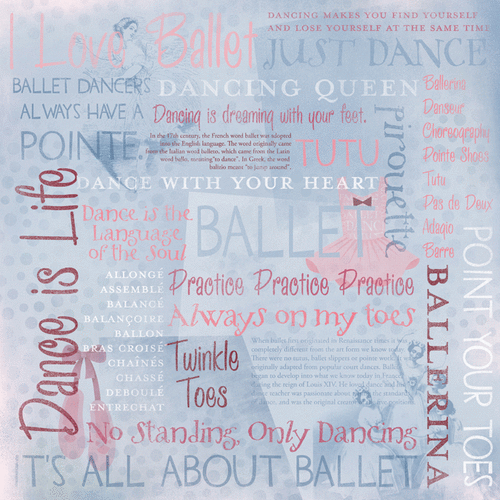 I Love Ballet
DANCING MAKES YOU FIND YOURSELF
AND LOSE YOURSELF AT THE SAME TIME
JUST DANCE
BALLET DANCERS
ALWAYS HAVE A
POINTE.
DANCING QUEEN
Dancing is dreaming with your feet.
In the 17th century, the French word ballet was adopted
into the English language. The word originally came
from the Italian word balletto, which came from the Latin
word ballo, meaning "to dance". In Greek, the word
ballizo means "to jump around".
TUTU
pirouette
Ballerina
Danseur
Choreography
Pointe Shoes
Tutu
Pas de Deux
Adagio
Barre
DANCE WITH YOUR HEART
Dance is Life
Dance is the
Language
of the Soul
BALLET
ALLONGÉ
ASSEMBLÉ
BALANCÉ
BALANÇOIRE
BALLON
BRAS CROISÉ
CHAÎNÉS
CHASSÉ
DEBOULÉ
ENTRECHAT
Practice Practice Practice
Always on my toes
Twinkle
Toes
When ballet first originated in Renaissance times it was
completely different from the art form we know today.
There were no tutus, ballet slippers or pointe work. It was
originally adapted from popular court dances. Ballet
began to develop into what we know today in
during the reign of Louis XIV. He loved dance and his
teacher was passionate about the standards
and was the original
BALLERINA
POINT YOUR TOES
No Standing, Only Dancing
IT'S ALL ABOUT BALLET